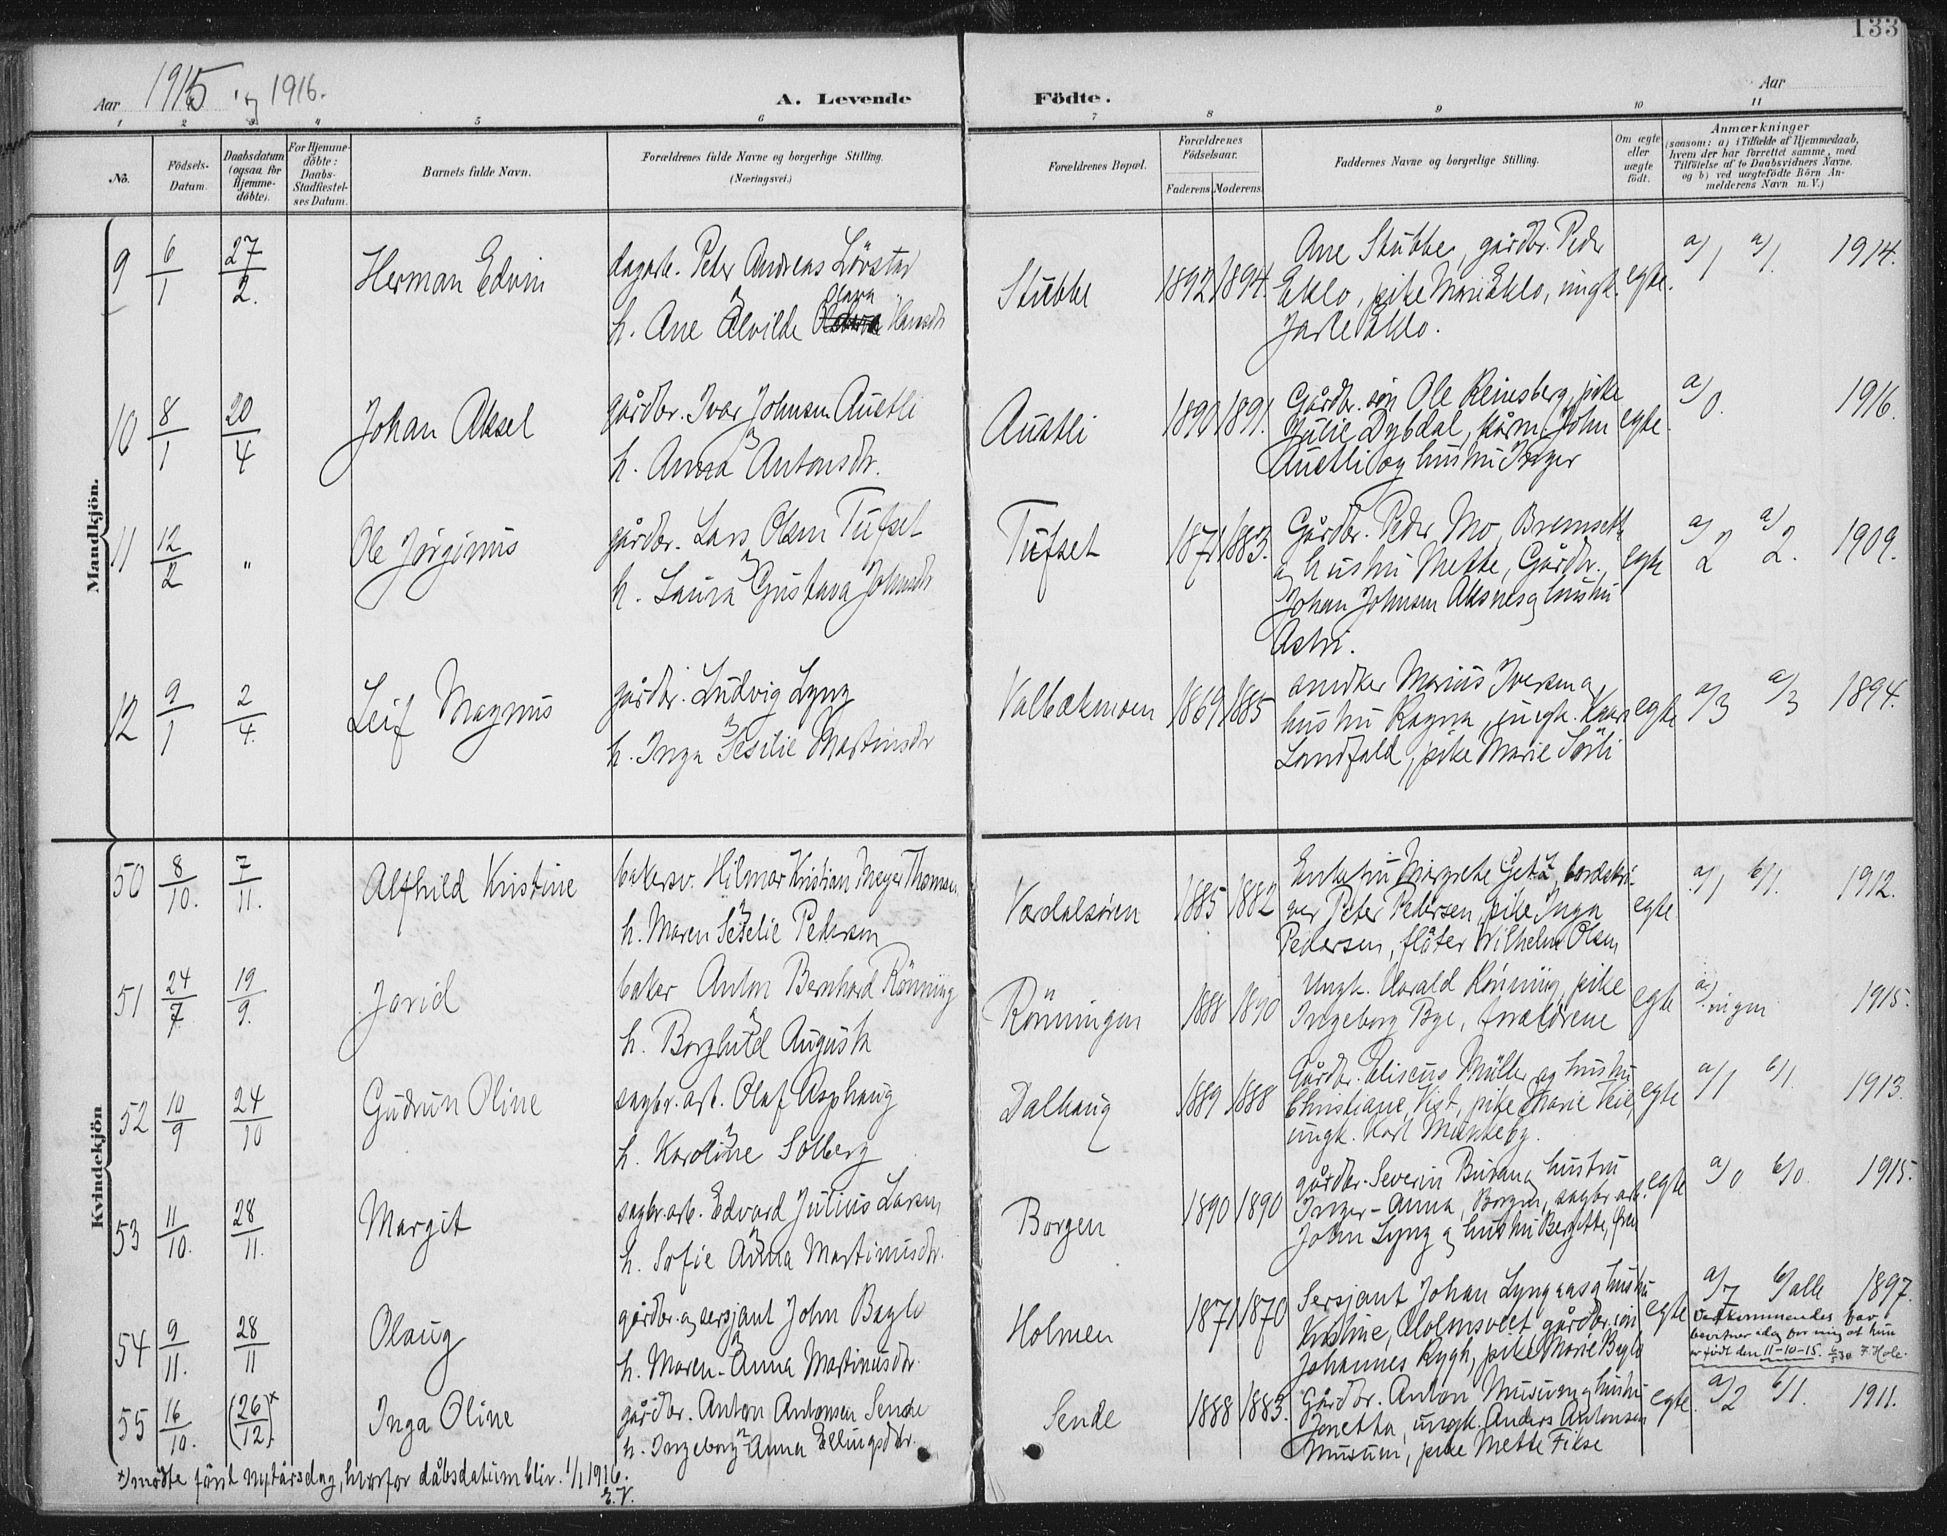 133
Aar 1915 og 1916.
A. Levende Födte.
Aar
1 2 3 4 5 6 7 8 9 10 11
No.
Födsels-
Datum.
Daabsdatum
(ogsaa for
Hjemme-
döbte).
For Hjemme-
döbte:
Daabs-
Stadfæstel-
ses Datum.
Barnets fulde Navn.
Forældrenes fulde Navne og borgerlige Stilling.
(Næringsvei.)
Forældrenes Bopæl.
Forældrenes
Födselsaar.
Faderens. Moderens.
Faddernes Navne og borgerlige Stilling.
Om ægte
eller
uægte
födt.
Anmærkninger
(saasom: a) i Tilfælde af Hjemmedaab,
hvem der har forrettet samme, med
Tilföielse af to Daabsvidners Navne,
og b) ved uægtefödte Börn An-
melderens Navn m. V.)
Mandkjön.
9 6/1 27/2. Herman Edvin
dagarb. Peter Andreas Lövstad
h. Ane Alvilde Olava Hansdr
Stubbe 1892 1894.
Ane Stubbe, gårdbr. Peder
Eklo, pike Mari Eklo, ungk.
Eklo.
egte.
a/1 a/1. 1914.
10 8/1 20/4 Johan Aksel
gårdbr. Ivar Johnsen Austli
h. Anna Antonsdr.
Austli 1890 1891.
Gårdbr. sön Ole Reinsberg, pike
Julie Dybdal, kårm. John
Austli og hustru Inger
egte.
a/0. 1916.
11 12/2 " Ole Jörginus
gårdbr. Lars Olsen Tufset
h. Laura Gustava Johnsdr
Tufset 1871 1883.
Gårdbr. Peder Mo, Bremseth
og hustru Mette, Gårdbr.
Johan Johnsen Aksnes og hustru
Astri.
egte
a/2 a/2. 1909.
12 9/1 2/4. Leif Magnus
gårdbr. Ludvig Lyng
h. Inga Sesilie Martinsdr
Valbekmoen 1869 1885
snedker Marius Iversen og
hustru Ragna, ungk. Kaare
Landfald, pike Marie Sörli
egte
a/3 a/3 1894.
Kvindekjön
50 8/10. 7/11. Alfhild Kristine
bakersv. Hilmar Kristian Meyer Thomsen
h. Maren Seselie Pedersen
Værdalsören 1885 1882
Enkefru Margrete Getz, bordskri-
ver Peter Pedersen, pike Inga
Pedersen, flöter Wilhelm Olsen
egte
a/1 b/1. 1912.
51 24/7. 19/9. Jorid
baker Anton Bernhard Rönning
h. Borghild Augusta
Rönningen 1888 1890
Ungk. Harald Rönning, pike
Ingeborg Bye, forældrene
egte
a/ingen 1915.
52 10/9 24/10 Gudrun Oline
sagbr.arb. Olaf Asphaug
h. Karoline Solberg
Dalhaug 1889 1888
Gårdbr. Eliseus Müller og hustru
Christiane, Vist, pike Marie Veie
ungk. Karl Munkeby.
egte
a/1 b/1. 1913.
53 11/10. 28/11. Margit
sagbr.arb. Edvard Julius Larsen
h. Sofie Anna Martinusdr.
Borgen 1890 1890
gårdbr. Severin Buran og hustru
Inger-Anna, Borgen, sagbr.arb.
John Lyng og hustru Bergitte,
egte
a/0 b/0. 1915.
54 9/11. 28/11 Olaug
gårdbr. og sersjant John Baglo
h. Maren-Anna Martinusdr.
Holmen 1871 1870
Sersjant Johan Lyngaas og hustru
Kristine, Holmsveet gårdbr. sön
Johannes Rygh, pike Marie Baglo
egte
a/7 b/alle 1897.
Vedkommendes far
bevitner idag for mig at hun
er født den 11-10-15. 6/5 30 F. Hole.
55 16/10. (26/12)x Inga Oline
gårdbr. Anton Antonsen Sende
h. Ingeborg-Anna Ellingsdtr.
Sende 1888 1883.
Gårdbr. Anton Musum og hustru
Jonetta, ungk. Anders Antonsen
Musum, pike Mette Fikse
egte.
a/2 b/1. 1911.
x) mødte först nytårsdag, hvorfor dåbsdatum blir 1/1 1916.